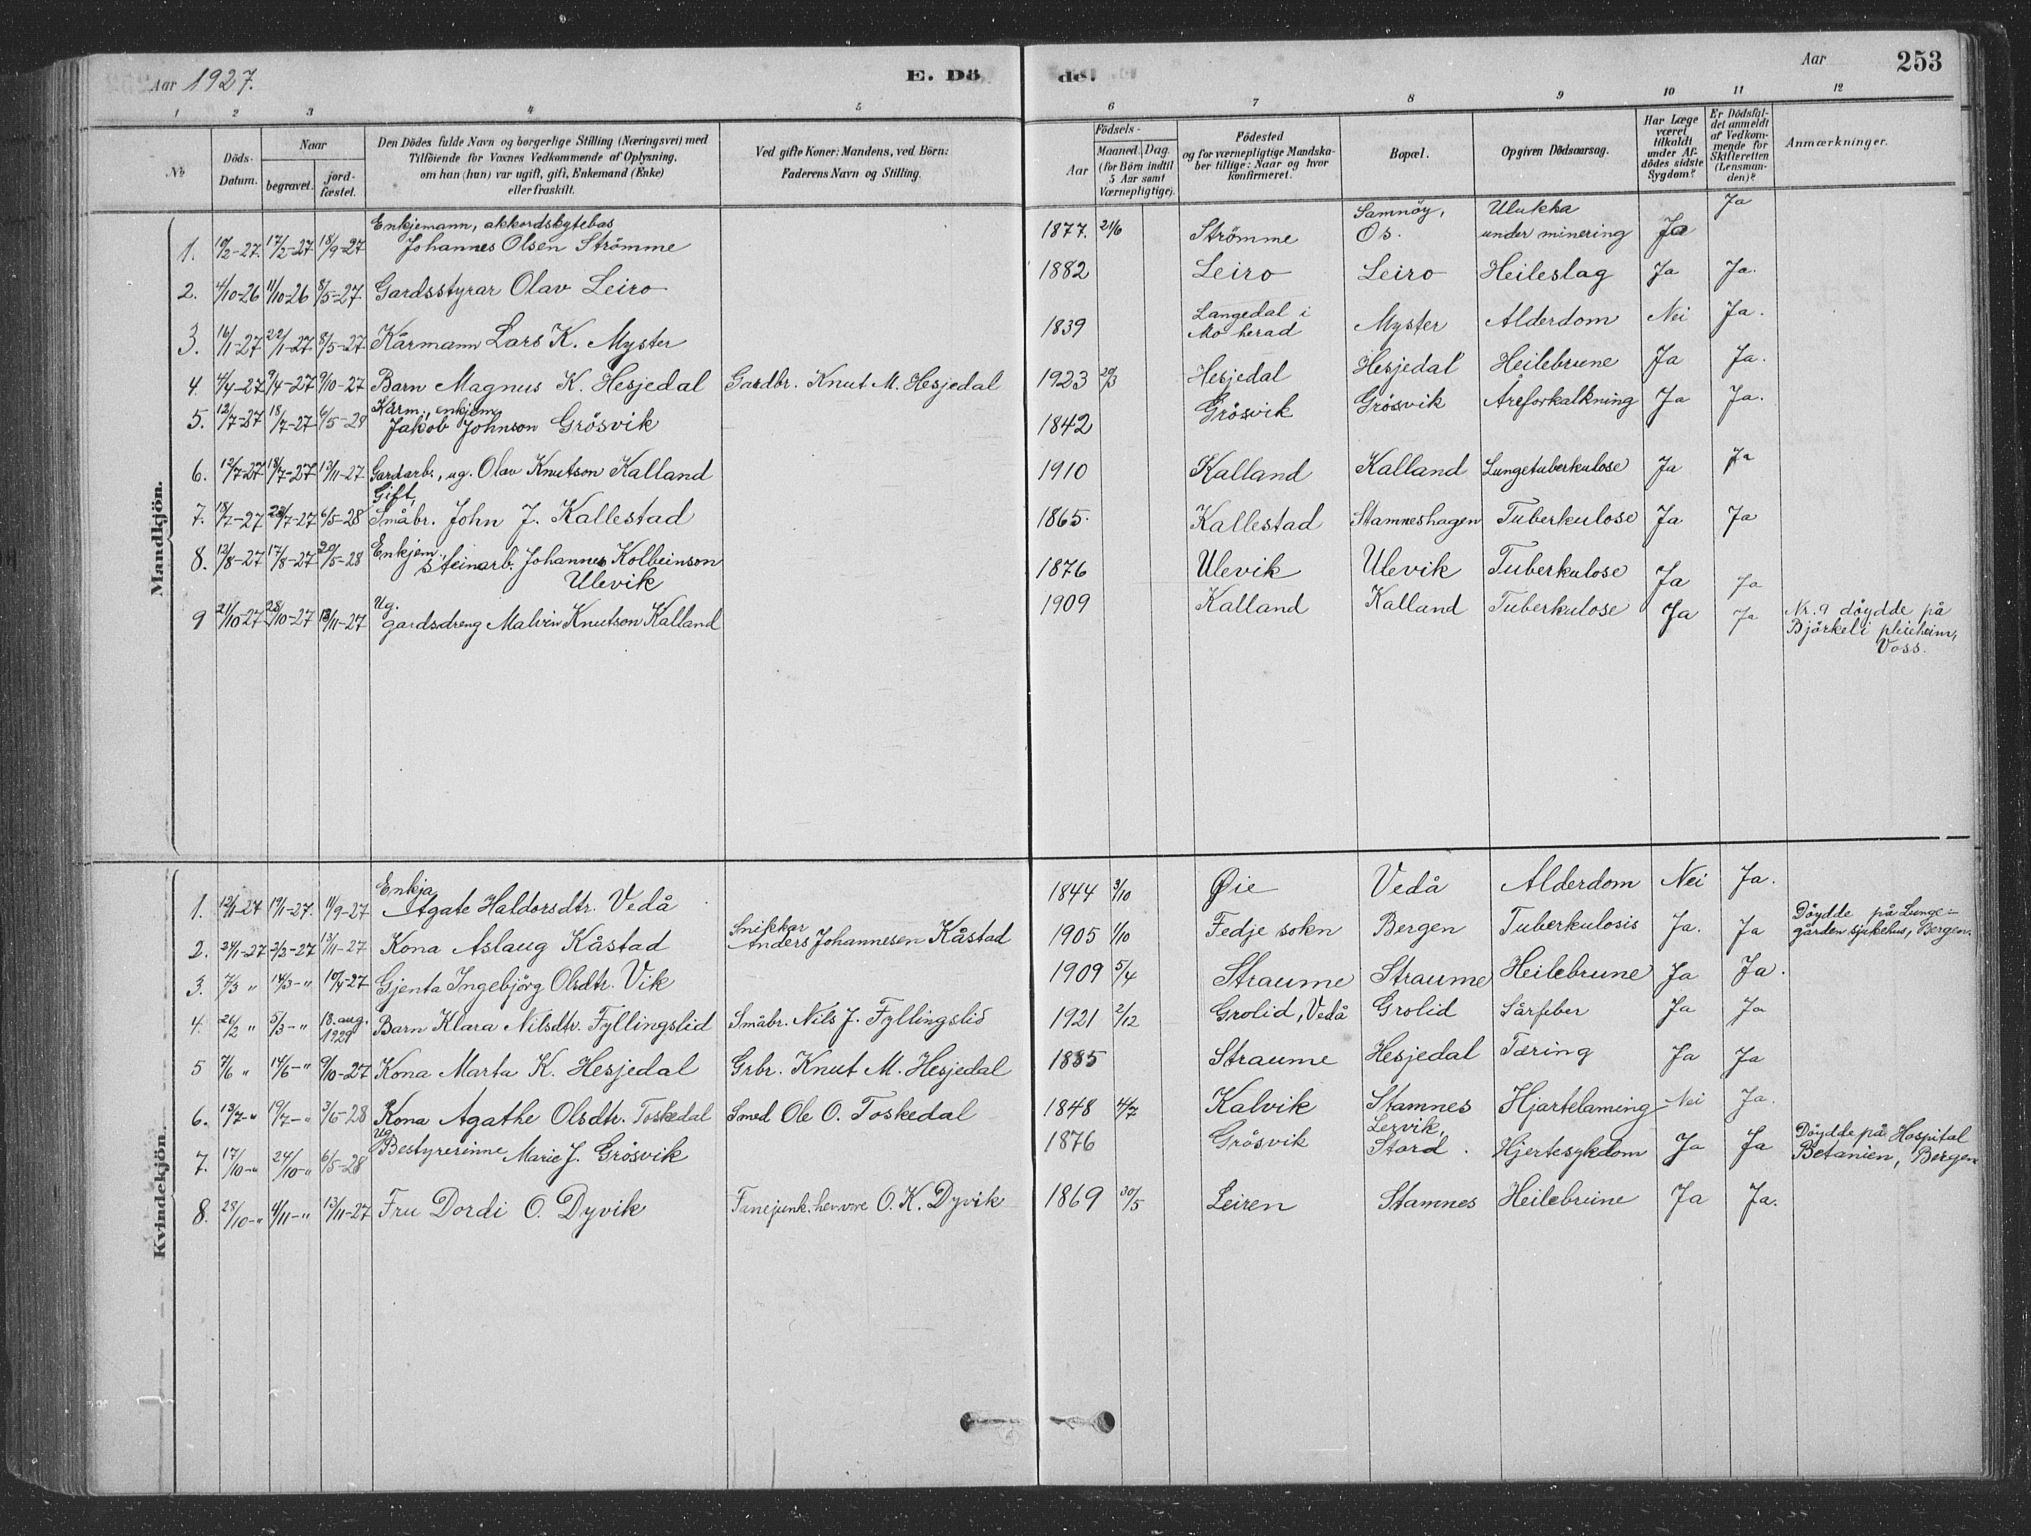 Aar 1927.
E. Dö
de.
Aar
253
1 2 3 4 5 6 7 8 9 10 11 12
No
Döds-Datum.
Naar
begravet.
jord-fæstet.
Den Dödes fulde Navn og borgerlige Stilling (Næringsvei) med
Tilföiende for Voxnes Vedkommende af Oplysning,
om han (hun) var ugift, gift, Enkemand (Enke)
eller fraskilt.
Ved gifte Koner: Mandens, ved Börn:
Faderens Navn og Stilling.
Födsels-
Aar
Maaned. Dag.
(for Börn indtil
5 Aar samt
Værnepligtige).
Födested
og for værnepligtige Mandska-
ber tillige: Naar og hvor
konfirmeret.
Bopæl.
Opgiven Dödsaarsag.
Har Læge
været
tilkaldt
under Af-
dödes sidste
Sygdom?
Er Dödsfal-
det anmeldt
af Vedkom-
mende for
Skifteretten
(Lensman-
den)?
Anmærkninger.
Mandkjön.
Enkjemann, akkordskytebas
1. 10/2-27. 17/2-27 18/9-27 Johannes Olsen Strömme 1877. 21/6 Strömme Samnöy, Os. Ulukka under minering Ja Ja
2. 4/10-26 11/10-26 8/5-27 Gardsstyrar Olav Leiro 1882 Leiro Leiro Heileslag Ja Ja.
3. 16/1-27 22/1-27 8/5-27 Kårmann Lars K. Myster 1839 Langedal i Mo herad Myster Alderdom Nei Ja.
4 4/4-27 9/4-27 9/10-27 Barn Magnus K. Hesjedal Gardbr. Knut M. Hesjedal 1923 20/3 Hesjedal Hesjedal Heilebrune Ja Ja.
Kårm., enkjem
5. 12/7-27 18/7-27 6/5-28 Jakob Johnson Grösvik 1842 Grösvik Grösvik Åreforkalkning Ja Ja.
6. 12/7-27 18/7-27 13/11-27 Gardarb., ug. Olav Knutson Kalland 1910 Kalland Kalland Lungetuberkulose Ja Ja
Gift,
7. 18/7-27 23/7-27 6/5-28 Småbr. John J. Kallestad 1865. Kallestad Stamneshagen Tuberkulose Ja Ja
8. 13/8-27 17/8-27 20/5-28 Enkjem., Steinarb. Johannes Kolbeinson Ulevik 1876 Ulevik Ulevik Tuberkulose Ja Ja
Ug.
9 21/10-27 28/10-27 13/11-27 gardsdreng Malvin Knutson Kalland 1909 Kalland Kalland Tuberkulose Ja Ja Nr. 9 döydde på
Björkeli pleieheim,
Voss.
Kvindekjön.
Enkja
1. 12/1-27 19/1-27. 11/9-27 Agate Haldorsdtr. Vedå 1844 3/10 Øie Vedå Alderdom Nei Ja.
2. 24/1-27 2/2-27 13/11-27 Kona Aslaug Kåstad Snikkar Anders Johannesen Kåstad 1905 1/10 Fedje sokn Bergen Tuberkulosis Ja. Ja Döydde på Lunge-
gården sjukehus, Bergen.
3. 7/3 " 14/3-" 10/4-27 Gjenta Ingebjörg Olsdtr. Vik 1909 5/4 Straume Straume Heilebrune Ja Ja.
4. 26/2 " 5/3-" 18. aug. 1929 Barn Klara Nilsdtr. Fyllingslid Småbr. Nils J. Fyllingslid 1921 2/12 Grolid, Vedå Grolid Sårfeber Ja Ja
5 7/6 " 14/6-" 9/10-27 Kona Marta K. Hesjedal Grbr. Knut M. Hesjedal 1885 Straume Hesjedal Tæring Ja Ja
6. 13/7-" 19/7-" 3/6-28 Kona Agathe Olsdtr. Toskedal Smed Ole O. Toskedal 1848 4/7 Kalvik Stamnes Hjartelaming Nei Ja.
Ug.
7. 17/10-" 24/10-" 6/5-28 Bestyrerinne Marie J. Grösvik 1876 Grösvik Lervik, Stord. Hjertesykdom Ja Ja Döydde på Hospital
Betanien, Bergen
8. 28/10-" 4/11-" 13/11-27 Fru Dordi O. Dyvik Fanejunk. O. K. Dyvik 1869 30/5 Leiren Stamnes Heilebrune Ja Ja.